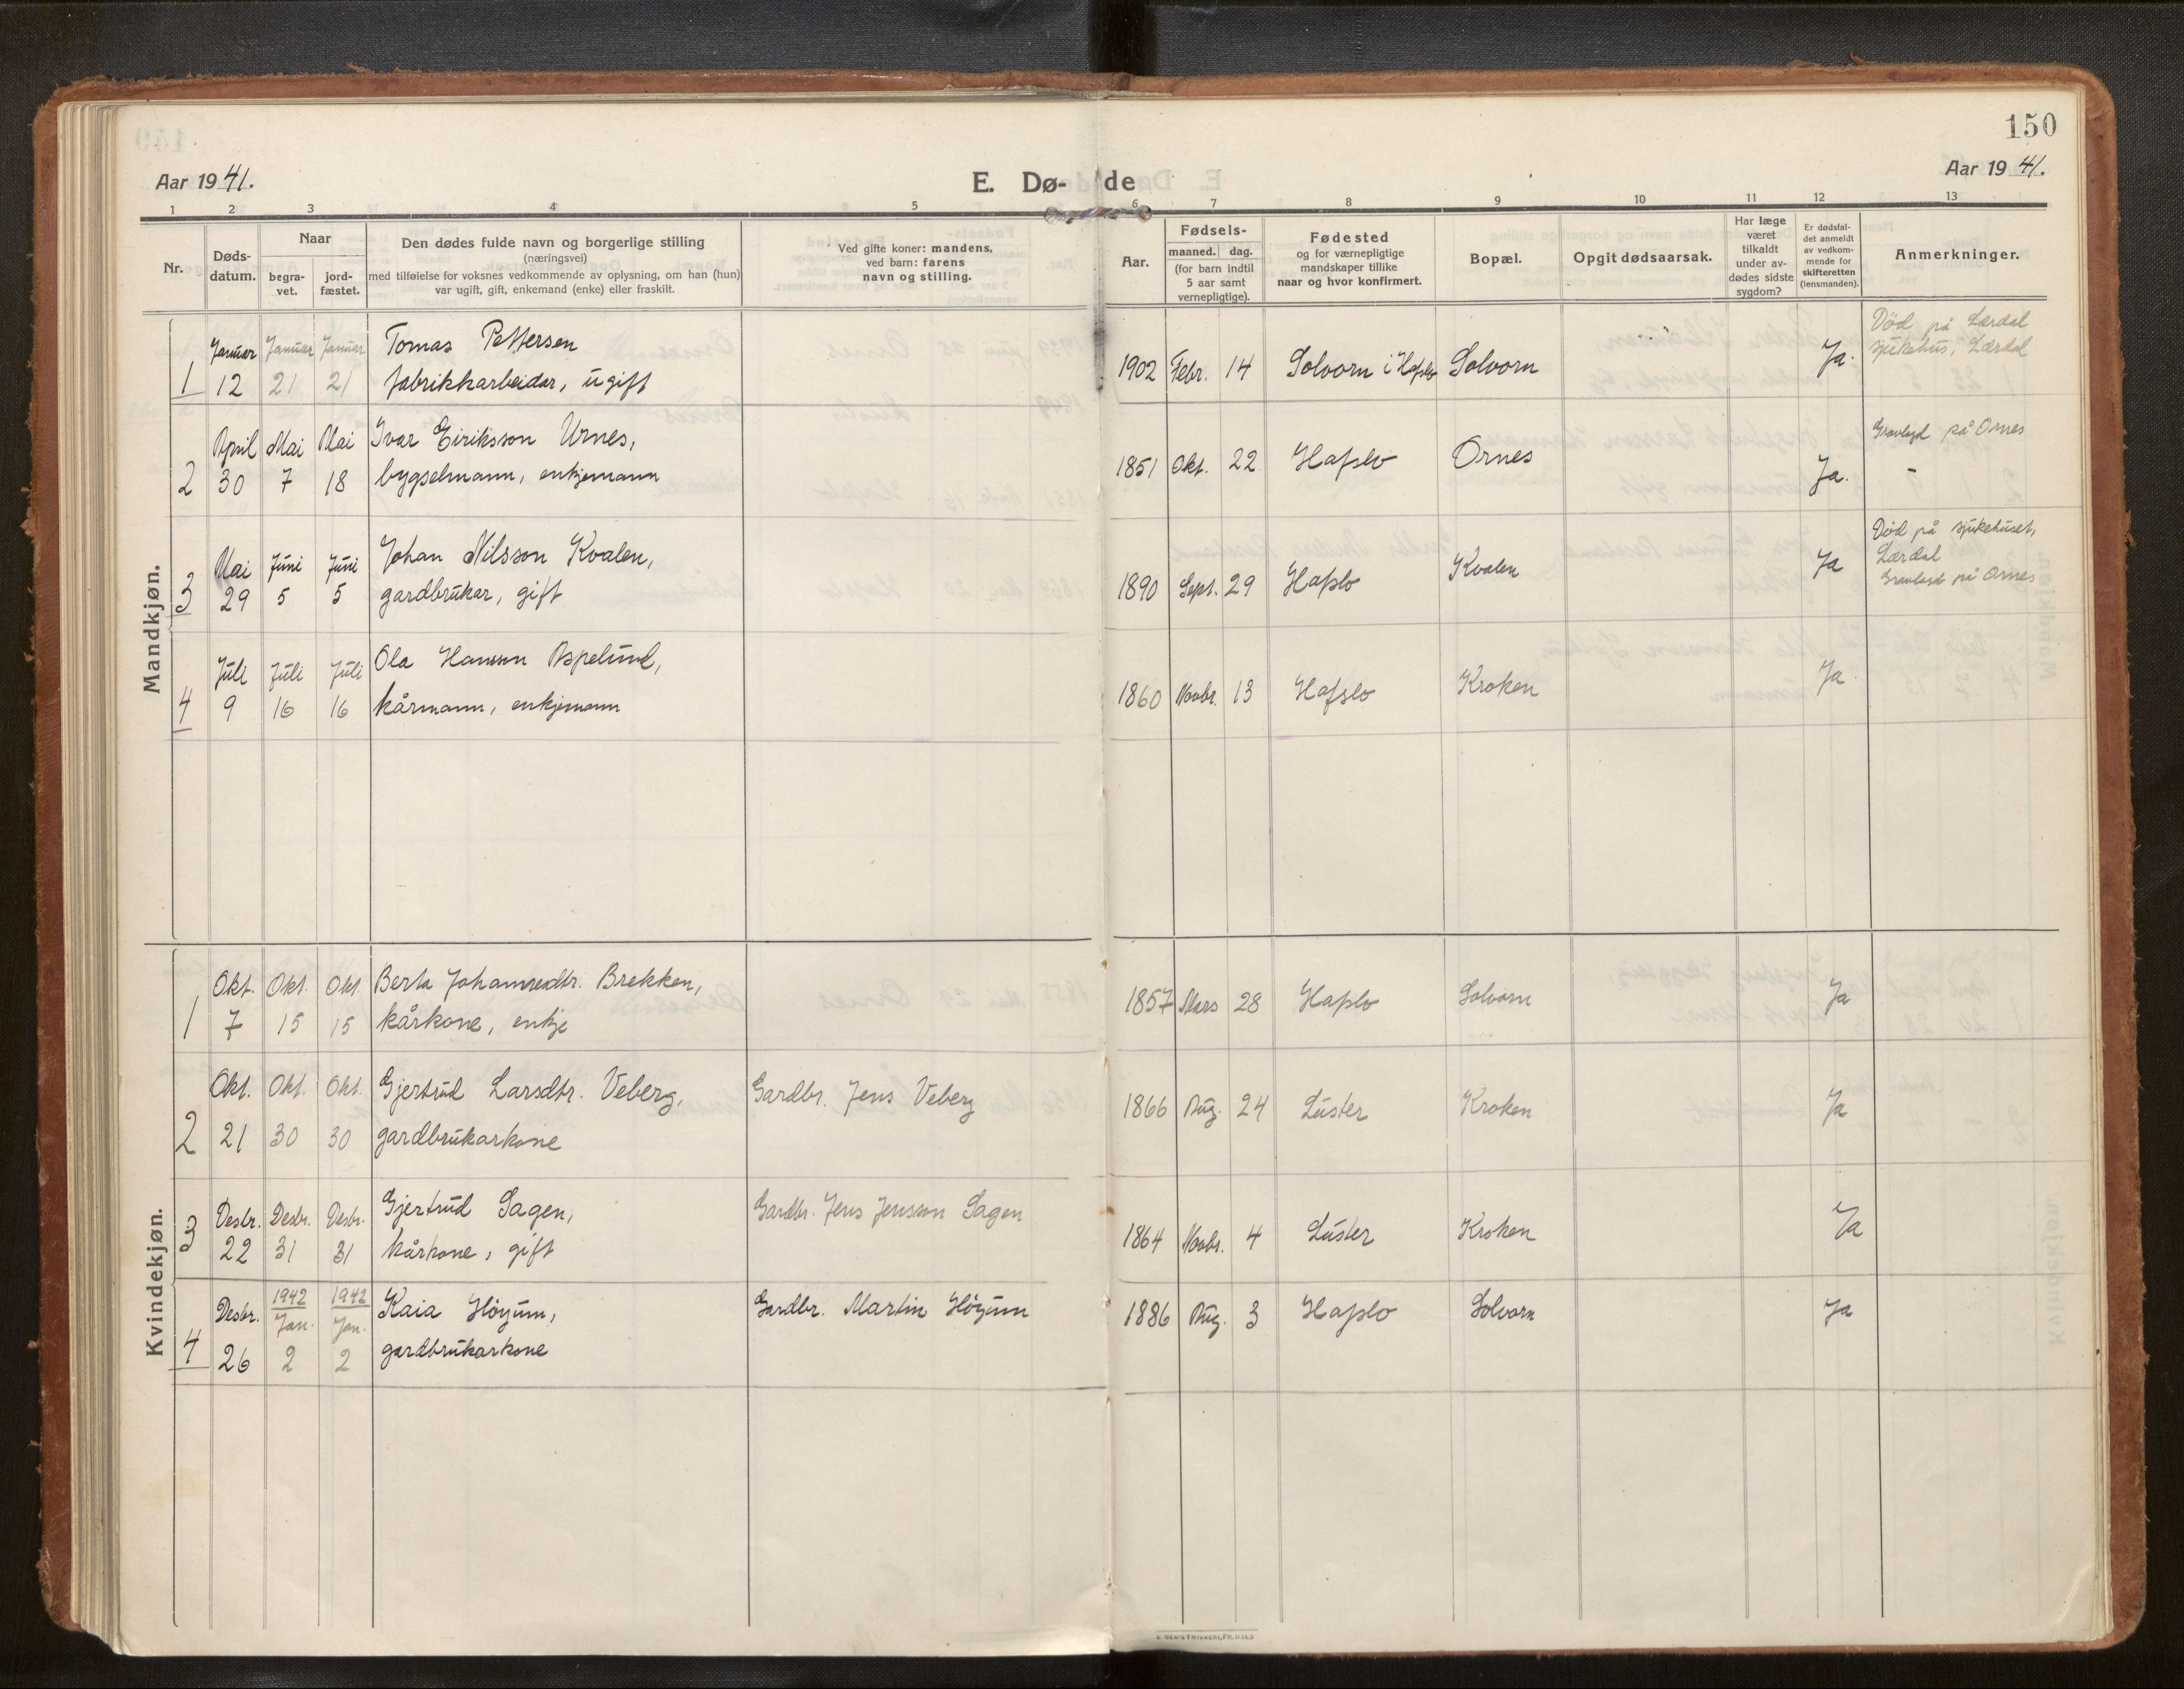 150
Aar 1941.
E. Dø- de
Aar 1941.
1 2 3 4 5 6 7 8 9 10 11 12 13
Nr.
Døds-
datum.
Naar
begra-
vet.
jord-
fæstet.
Den dødes fulde navn og borgerlige stilling
(næringsvei)
med tilføielse for voksnes vedkommende av oplysning, om han (hun)
var ugift, gift, enkemand (enke) eller fraskilt.
Ved gifte koner: mandens,
ved barn: farens
navn og stilling.
Aar.
Fødsels-
maaned. dag.
(for barn indtil
5 aar samt
vernepligtige).
Fødested
og for værnepligtige
mandskaper tillike
naar og hvor konfirmert.
Bopæl.
Opgit dødsaarsak.
Har læge
været
tilkaldt
under av-
dødes sidste
sygdom?
Er dødsfal-
det anmeldt
av vedkom-
mende for
skifteretten
(lensmanden).
Anmerkninger.
Mandkjøn.
Januar Januar Januar Tomas Pettersen
1 12 21 21 fabrikkarbeidar, ugift
1902 Febr. 14 Solvorn i Hafslo Solvorn Ja.
Död på Lærdal
sjukehus, Lærdal
April Mai Mai Ivar Eiriksson Urnes,
2 30 7 18 bygselmann, enkjemann
1851 Okt. 22 Hafslo Ornes Ja.
Gravlagd på Ornes
-
Mai Juni Juni Johan Nilsson Kvalen,
3 29 5 5 gardbrukar, gift
1890 Sept. 29 Hafslo Kvalen Ja
Död på sjukehuset,
Lærdal
Gravlagd på Ornes
Juli Juli Juli Ola Hansson Aspelund,
4 9 16 16 kårmann, enkjemann
1860 Novbr. 13 Hafslo Kroken Ja.
Kvindekjøn.
Okt. Okt. Okt. Berta Johannesdtr. Brekken,
1 7 15 15 kårkone, enkje
1857 Mars 28 Hafslo Solvorn Ja
Okt. Okt. Okt. Gjertrud Larsdtr. Veberg, Gardbr. Jens Veberg
2 21 30 30 gardbrukarkone
1866 Aug. 24 Luster Kroken Ja
Desbr. Desbr. Desbr. Gjertrud Sagen, Gardbr. Jens Jensson Sagen
3 22 31 31 kårkone, gift
1864 Novbr. 4 Luster Kroken Ja
1942 1942
Desbr. Jan. Jan. Kaia Höyum, Gardbr. Martin Höyum
4 26 2 2 gardbrukarkone
1886 Aug. 3 Hafslo Solvorn Ja